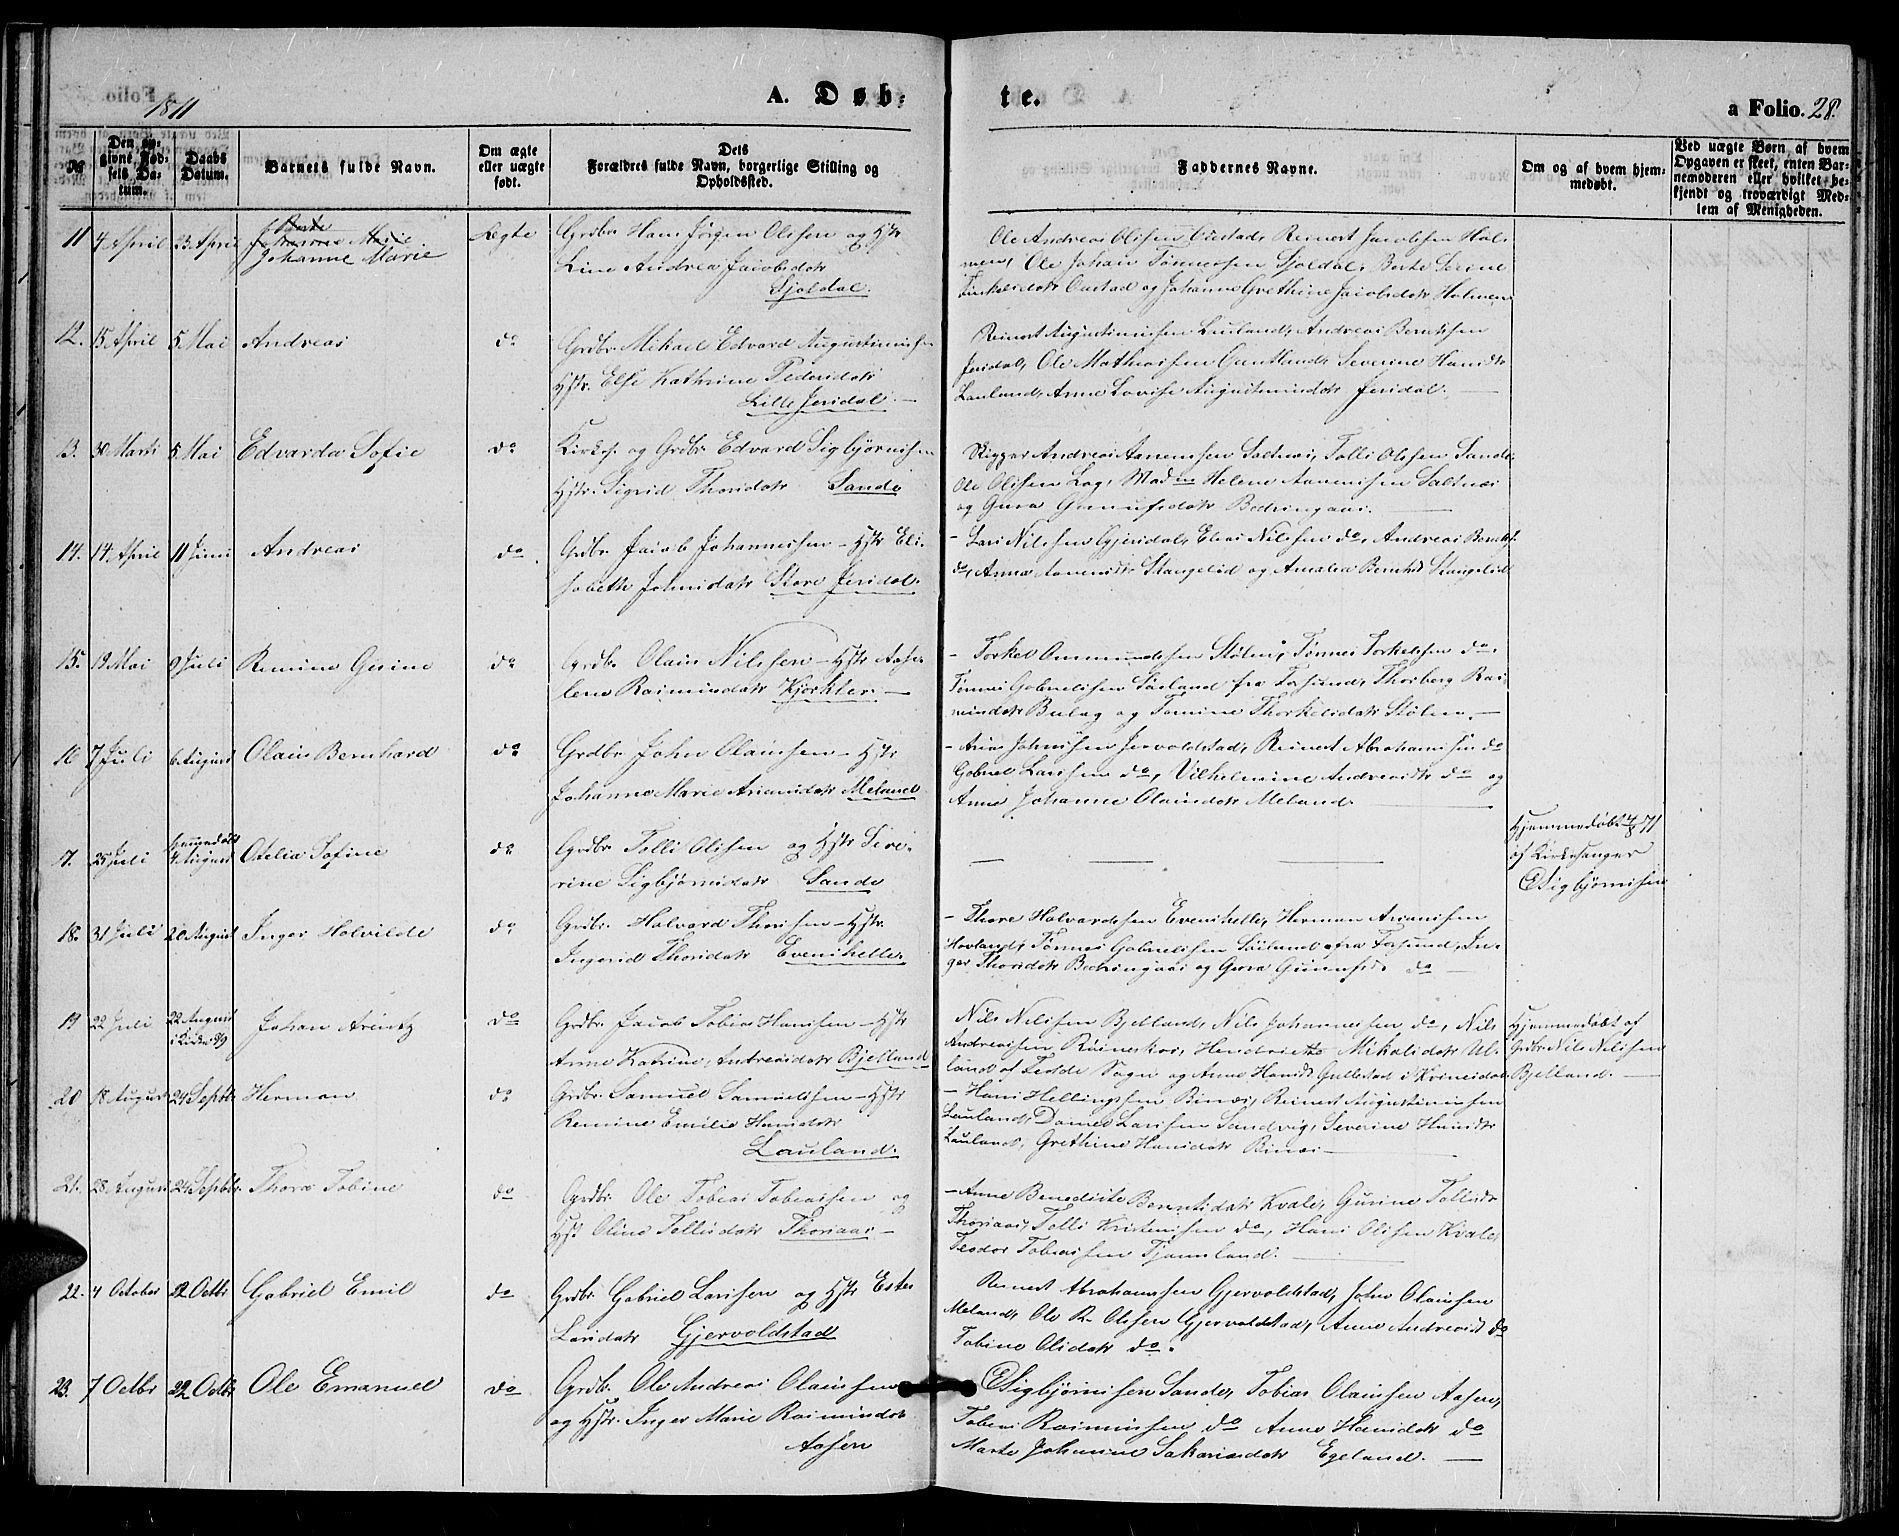 1871
A. Døb:
te.
a Folio. 28.
No
Den opgivne Fødsels Datum.
Daabs Datum.
Barnets fulde Navn.
Om ægte eller uægte født.
Dets
Forældres fulde Navn, borgerlige Stilling og
Opholdssted.
Faddernes Navne.
Om og af hvem hjemmedøbt.
Ved uægte Børn af hvem
Opgaven er skeet, enten Barnemoderen eller hvilket bekjendt og troværdigt Medlem af Menigheden.
11 4 April 23 April Johanne Marie Ægte Grdbr. Hans Jørgen Olsen og Hstr
Line Andrea Jacobsdatr
Sjoldal.
Ole Andreas Olsen Oustad, Reinert Jacobsen Holmen, Ole Johan Tønnessen Sjoldal, Berte Serine
Oustad og Johanne Grethine Jacobsdatr Holmen
12. 15 April 5 Mai Andreas do Grdbr. Mikael Edvard Augustinussen
Hstr. Else Kathrine Pedersdatr
Lille Jerdal.
Reinert Augustinussen Lauland, Andreas Berntsen
Jerdal, Ole Mathiassen Severine Hansdtr
Lauland, Anne Lovise Augustinusdatr Jerdal.
13. 30 Marts 5 Mai Edvarda Sofie do Kirkes. og Grdbr. Edvard Sigbjørnsen
Hstr. Sigrid Thorsdatr Sande
Skipper Andreas Aanensen Saltnes, Tolli Olsen Sande
Ole Olsen Log, Madm Helene Aanensen Saltnes
og Gura Gunufsdatr
14. 14 April 11 Juni Andreas do Grdbr. Jacob Johannessen – Hstr Elisabeth Johnsdatr Store Jerdal.
Lars Nilssen Gjerdal, Elias Nilsen do, Andreas Berntsen
do, Anna Stangelid og Amalia Berntsd Stangelid
15. 19 Mai 9 Juli Remine Gesine do Grdbr. Olaus Nilssen – Hstr Aaselene Rasmusdatr Kjørkler. –
Torkel Ommundsen Stølen, Tønnes Torkelsen do,
Tønnes Gabrielsen Søeland fra Forsund, Thorberg Rasmusdatr Bulag og Tomine Thorkelsdatr Stølen. –
16 7 Juli 6 August Olaus Bernhard do Grdbr. John Olaussen – Hstr
Johanne Marie Ariansdatr Meland
Arias Johnsen Jervoldstad, Reinert Abrahamsen do
Gabriel Larsen do, Vilhelmine Andreasdtr do og
Anne Johanne Olausdatr Meland.
17. 25 Juli hjemmedøbt
4 August Otelia Sofine do Grdbr. Tolli Olsen og Hstr Severine Sigbjørnsdatr Sande
Hjemmedøbt 4/8 71
af Kirkesanger
E Sigbjørnsen
18. 31 Juli 20 August Inger Halvilde do Grdbr. Halvard Thorsen – Hstr.
Ingerid Thorsdatr Evenshelle.
Thore Halvardsen Evenshelle, Herman Ariansen
Hovland, Tønnes Gabrielsen Søiland fra Forsund, Inger Thorsdatr og Gura do –
19 22 Juli 22 August
i Kirken Johan Arentz do Grdbr. Jacob Tobias Hansen – Hstr
Anne Katrine Andreasdatr Bjelland
Nils Nilsen Bjelland, Nils Johannessen do, Nils
Andreassen Røineskar, Hendriette Mikalsdatr Ulland af Fedde Sogn og Anne Hansdr Gullestad i Kvinesdal.
Hjemmedøbt af
Grdbr. Nils Nilsen
Bjelland.
20 18 August 24 Septbr. Herman do Grdbr. Samuel Samuelsen – Hstr
Remine Emilie Hansdatr
Lauland.
Hans Hellingsen Rinæs, Reinert Augustinussen
Lauland, Daniel Larsen Sandvig, Severine Hansdtr
Lauland, Grethine Hansdatr Rinæs –
21. 28 August 24 Septbr. Thora Tobine do Grdbr. Ole Tobias Tobiassen og
Hst Oline Tollisdatr Thorsaas –
Anne Benedicte Berentsdatr Kvale, Gurine Tollisdr
Thorsaas, Tolli Kristensen do, Hans Olsen Kvale,
Teodor Tobiassen Tjomsland.
22. 4 October 22 Octbr Gabriel Emil do Grdbr. Gabriel Larsen og Hstr Ester
Larsdatr Gjervoldstad
Reinert Abrahamsen Gjervoldstad, John Olaussen
Meland, Ole R. Olsen Gjervoldstad, Anne Andreasd do
Tobine Olsdatr do.
23. 7 Octbr 22 Octbr. Ole Emanuel do Grdbr. Ole Andreas Olaussen
og Hstr. Inger Marie Rasmusdatr
Aasen
E Sigbjørnsen Sande, Tobias Olaussen Aasen,
Tobias Rasmussen do Anne Hansdatr do
Marte Johanne Sakariasdatr Egeland. –